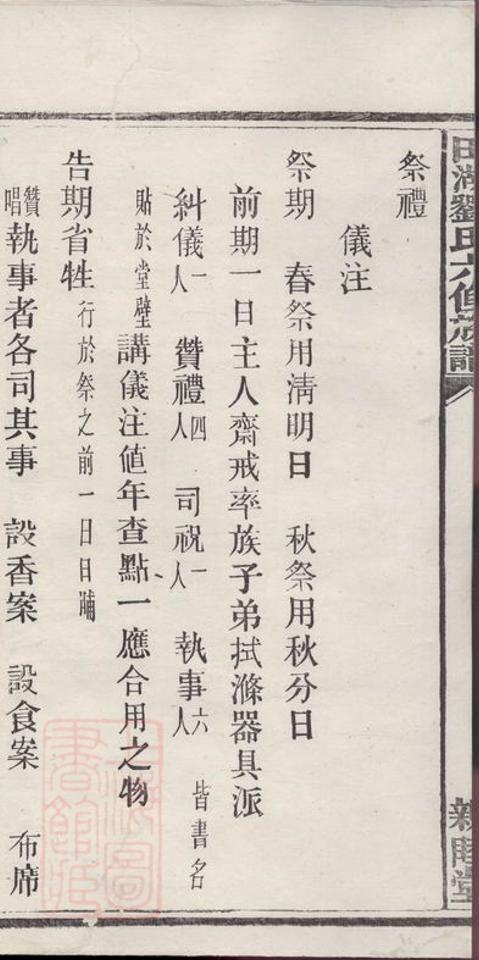 祭禮
儀注
祭期 春祭用淸明日 秋祭用秋分日
前期一日主人齋戒率族子弟拭滌器具派
糾儀一人 贊禮四人 司祝一人 執事六人 皆書名
貼於堂壁講儀注値年查點一應合用之物
告期省牲行於祭之前一日日晡
贊唱執事者各司其事 設香案 設食案 布席